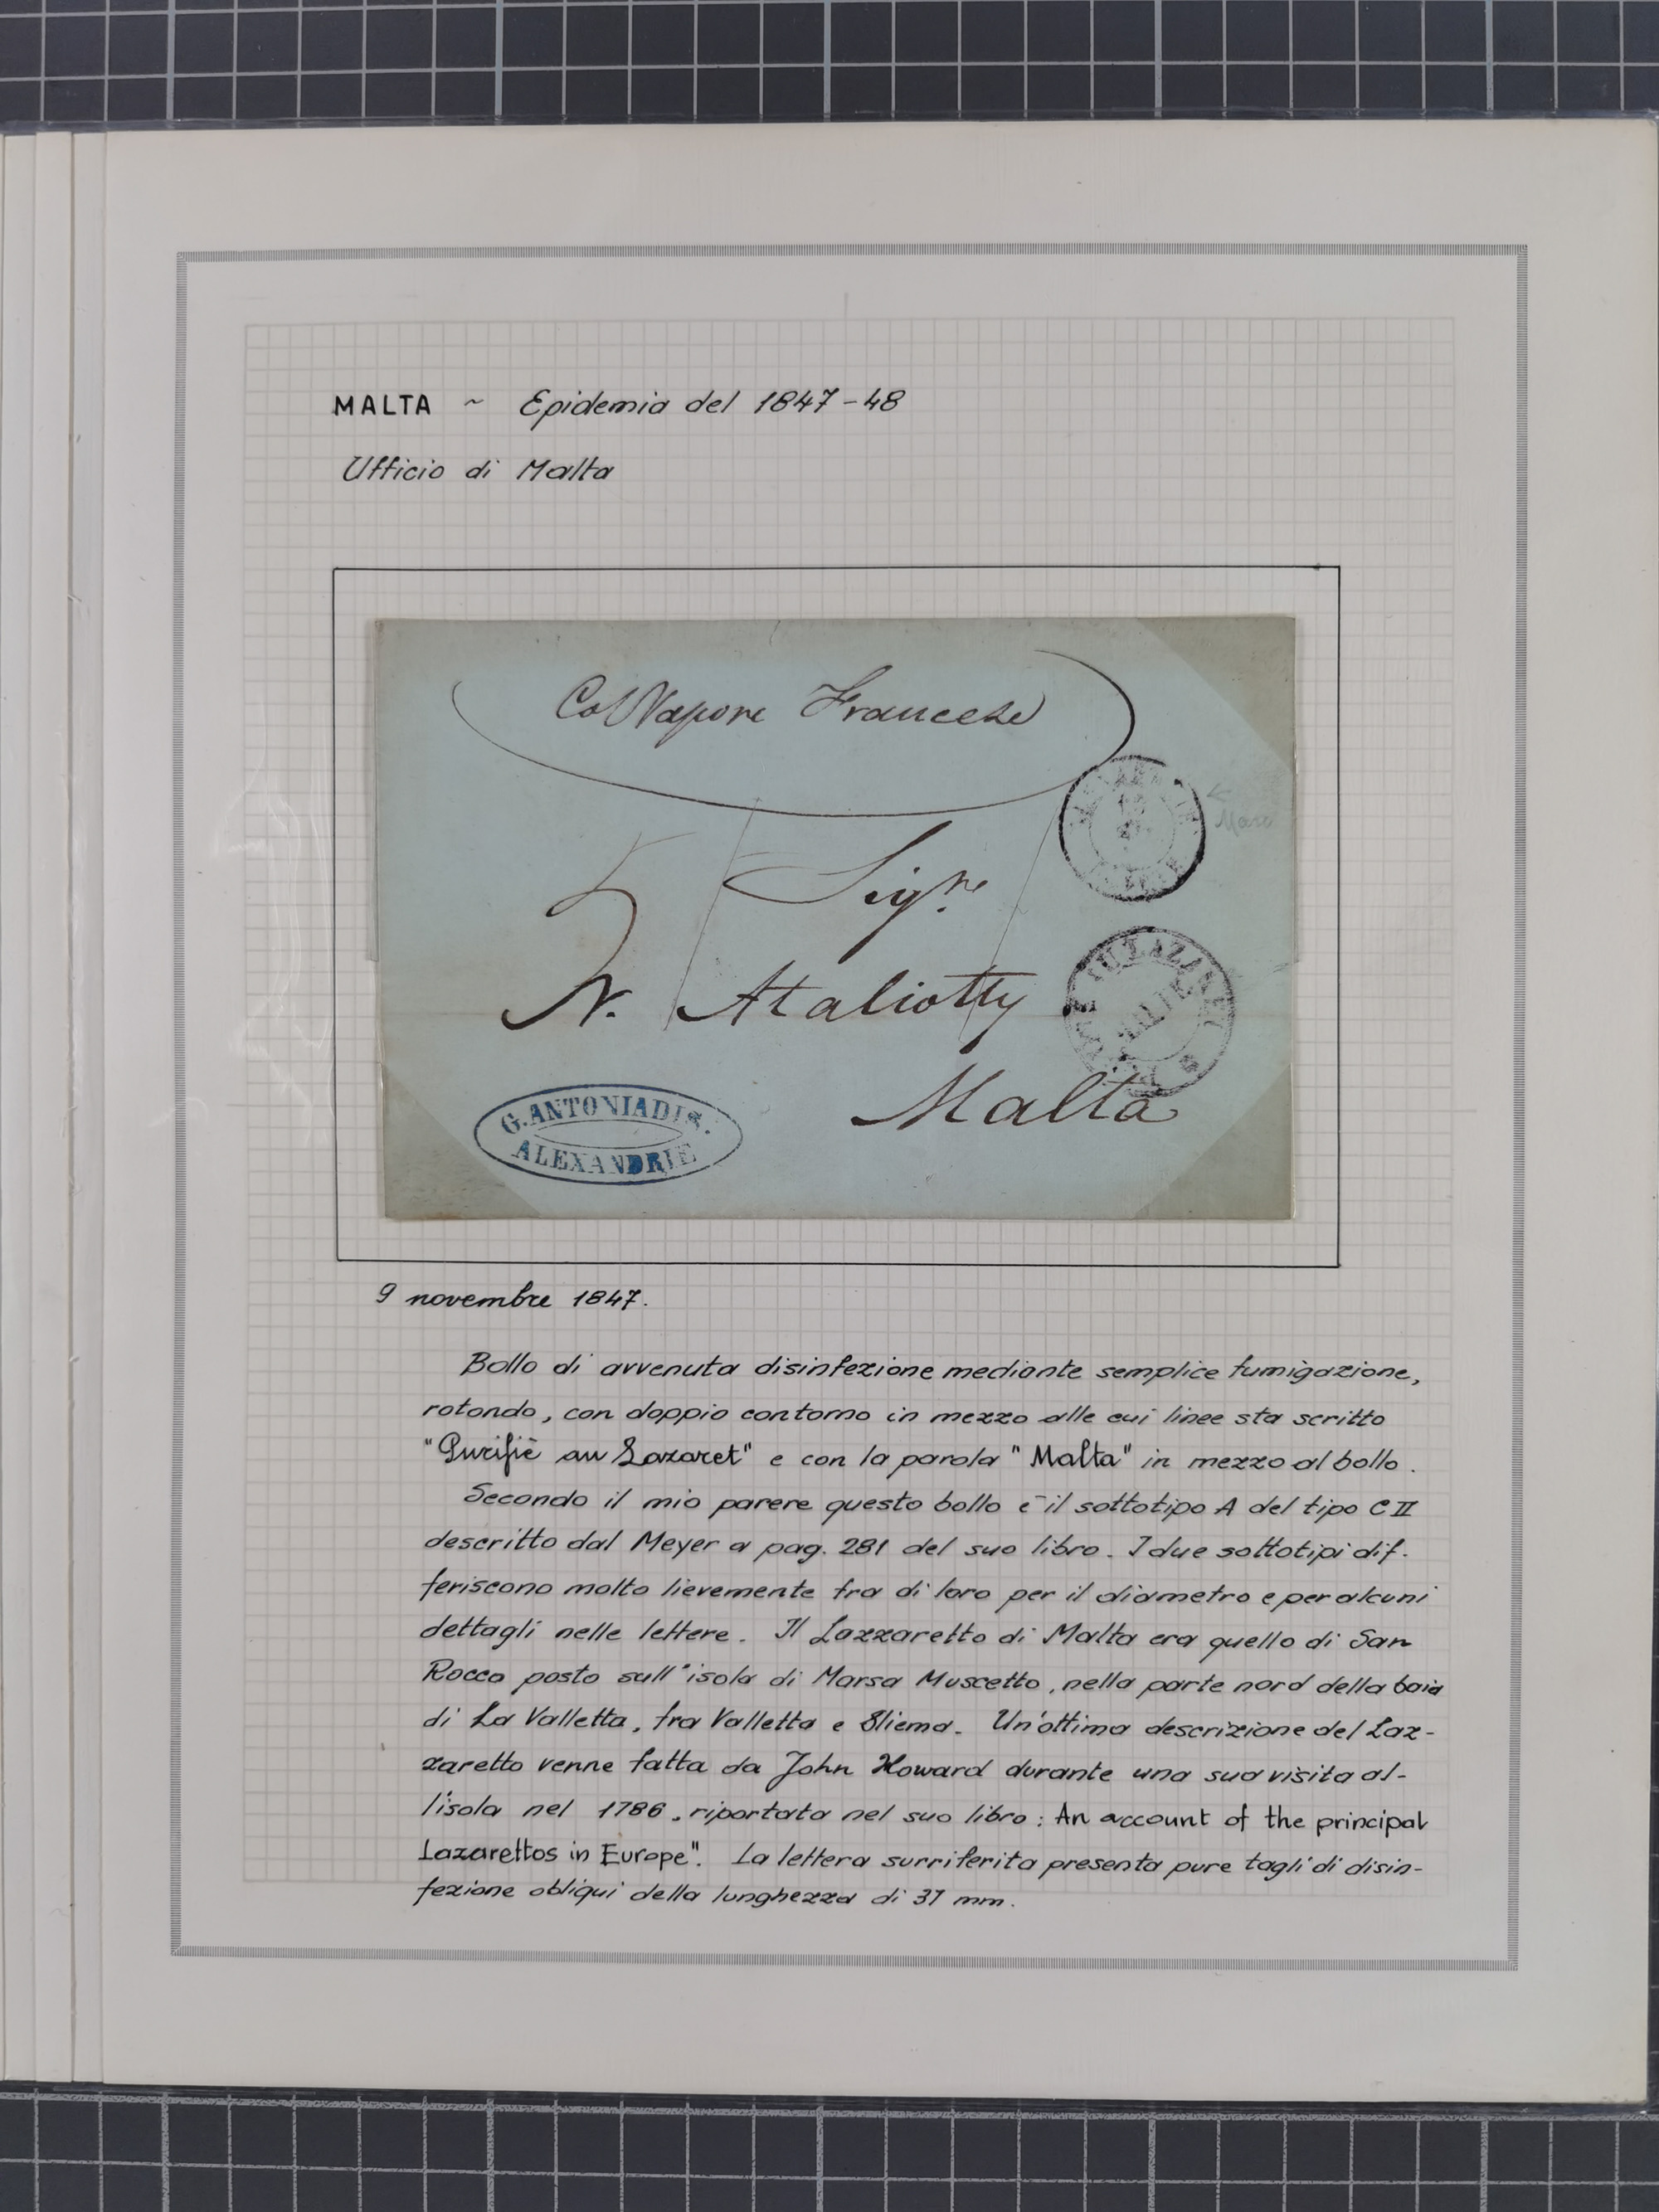 MALTA ~ Epidemia del 1847-48
Ufficio di Malta
Col Vapore Francese
Sigre
N. Ataliotty
Malta
G. ANTONIADIS.
ALEXANDRIE
AU LAZARET
MALTE
9 novembre 1847.
Bollo di avvenuta disinfezione mediante semplice fumigazione,
rotondo, con doppio contorno in mezzo alle cui linee sta scritto
"Purifiè au Lazaret" e con la parola "Malta" in mezzo al bollo.
Secondo il mio parere questo bollo è il sottotipo A del tipo C II
descritto dal Meyer a pag. 281 del suo libro. I due sottotipi dif-
feriscono molto lievemente fra di loro per il diametro e per alcuni
dettagli nelle lettere. Il Lazzaretto di Malta era quello di San
Rocco posto sull'isola di Marsa Muscetto, nella parte nord della baia
di La Valletta, fra Valletta e Sliema. Un'ottima descrizione del Laz-
zaretto venne fatta da John Howard durante una sua visita al-
l'isola nel 1786, riportata nel suo libro: An account of the principal
Lazarettos in Europe". La lettera surriferita presenta pure tagli di disin-
fezione obliqui della lunghezza di 37 mm.